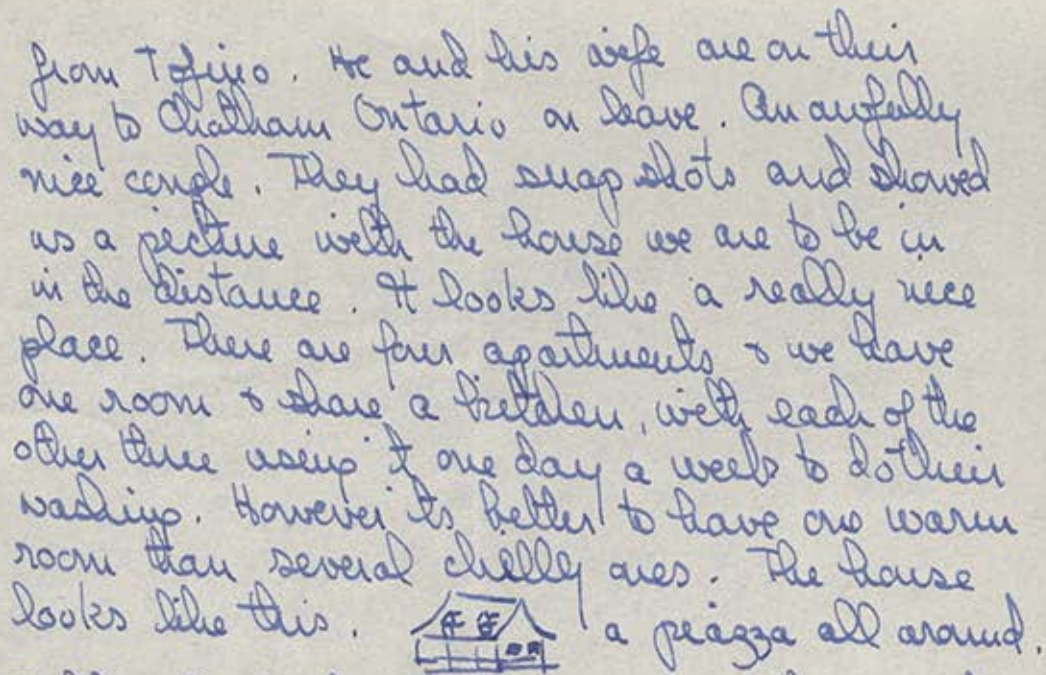 from Tofino. He and his wife are on their
way to Chatham Ontario on leave. An awfully
nice couple. They had snap shots and showed
us a picture with the house we are to be in
in the distance. It looks like a really nice
place. There are four apartments & we have
one room & share a kitchen, with each of the
other three using it one day a week to do their
washing. However its better to have one warm
room than several chilly ones. The house
looks like this. a piazza all around.